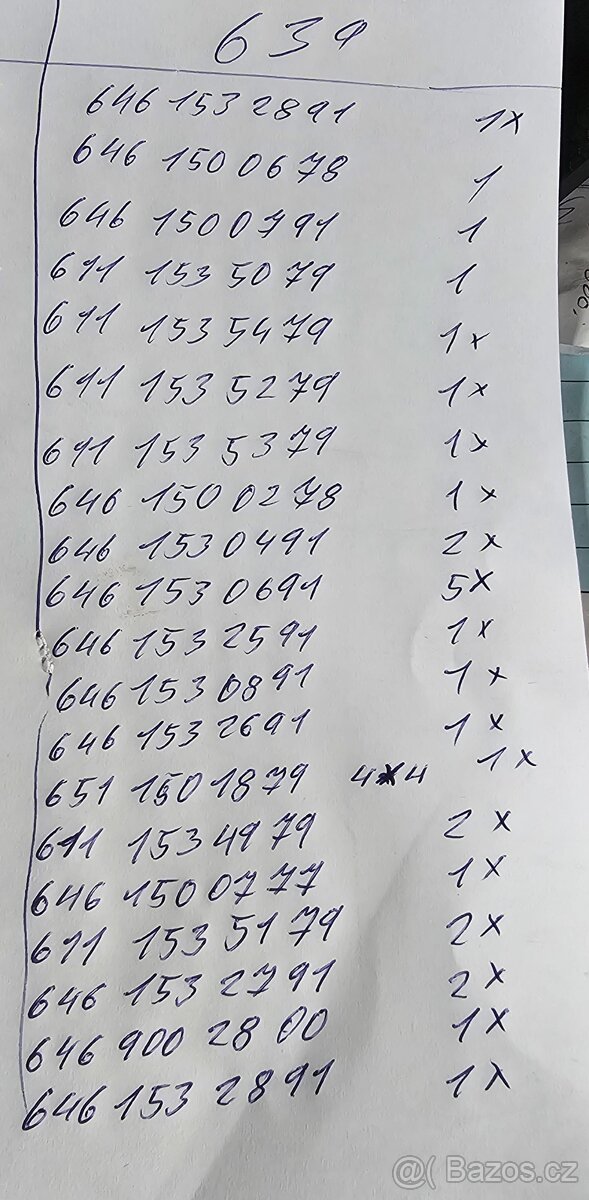 639
646 153 2891 1x
646 150 0678 1
646 150 0791 1
611 153 5079 1
611 153 5479 1x
611 153 5279 1x
611 153 5379 1x
646 150 0278 1x
646 153 0491 2x
646 153 0691 5x
646 153 2591 1x
646 153 0891 1x
646 153 2691 1x
651 150 1879 4x4 1x
611 153 4979 2x
646 150 0777 1x
611 153 5179 2x
646 153 2791 2x
646 900 2800 1x
646 153 2891 1x
@( Bazos.cz